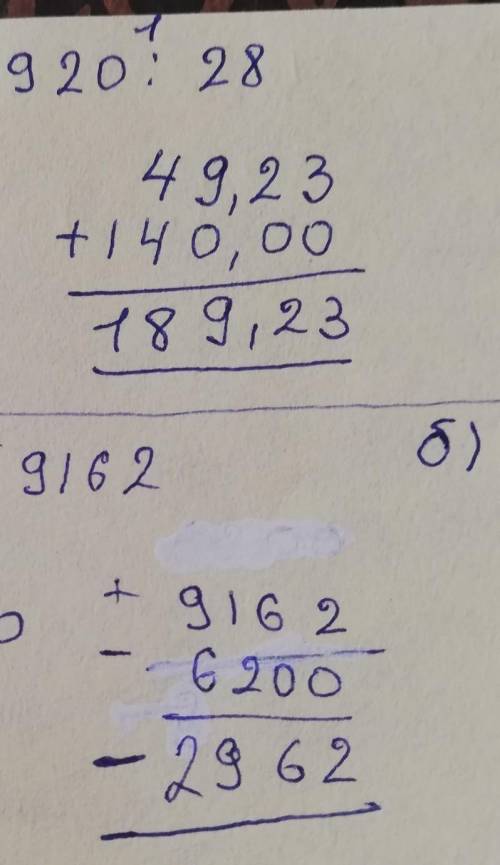 1
920 : 28
49,23
+140,00
189,23
9162
б)
+ 9162
- 6200
- 2962